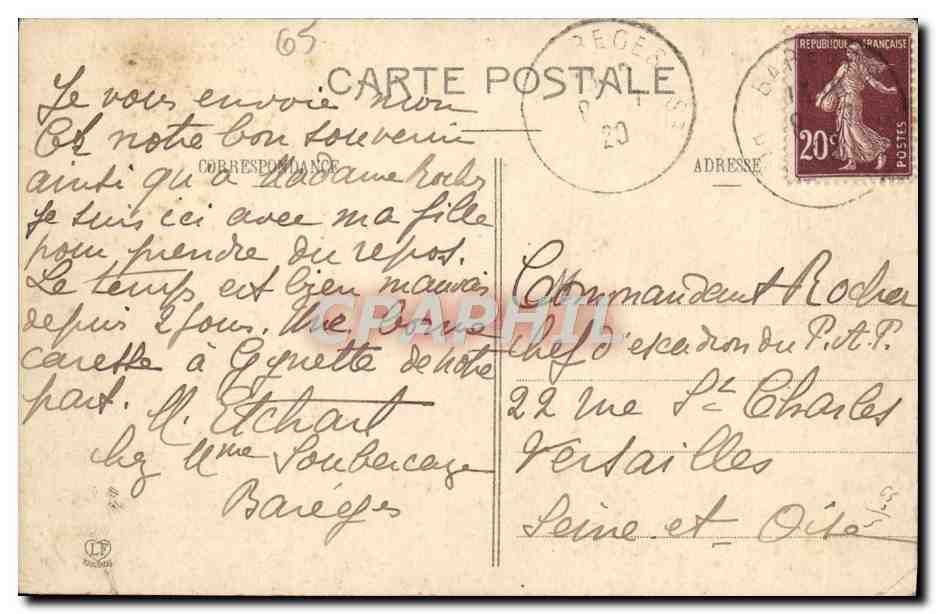 65
CARTE POSTALE
CORRESPONDANCE
ADRESSE
REPUBLIQUE FRANÇAISE
20c
POSTES
BAREGES
20
Je vous envoie mon
et notre bon souvenir
ainsi qu'à Madame Rocher
Je suis ici avec ma fille
pour prendre du repos.
Le temps est bien mauvais
depuis 2 jours. Une bonne
caresse à Gignette de notre
part.
M. Etchart
chez Mme Soubercaze
Baréges
Commandant Rocher
chef d'escadron du P.A.P.
22 rue St Charles
Versailles
Seine et Oise
CPAPHIL
LF